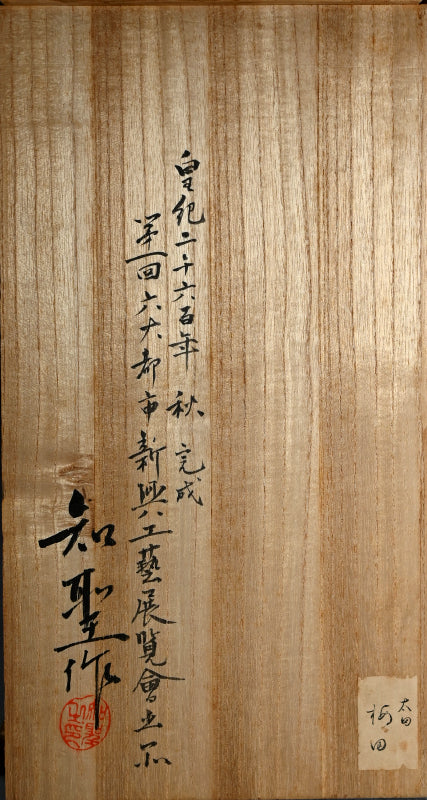 皇紀二千六百年 秋 完成
第一回六大都市新興工藝展覽會出品
知聖作
太田
梅田